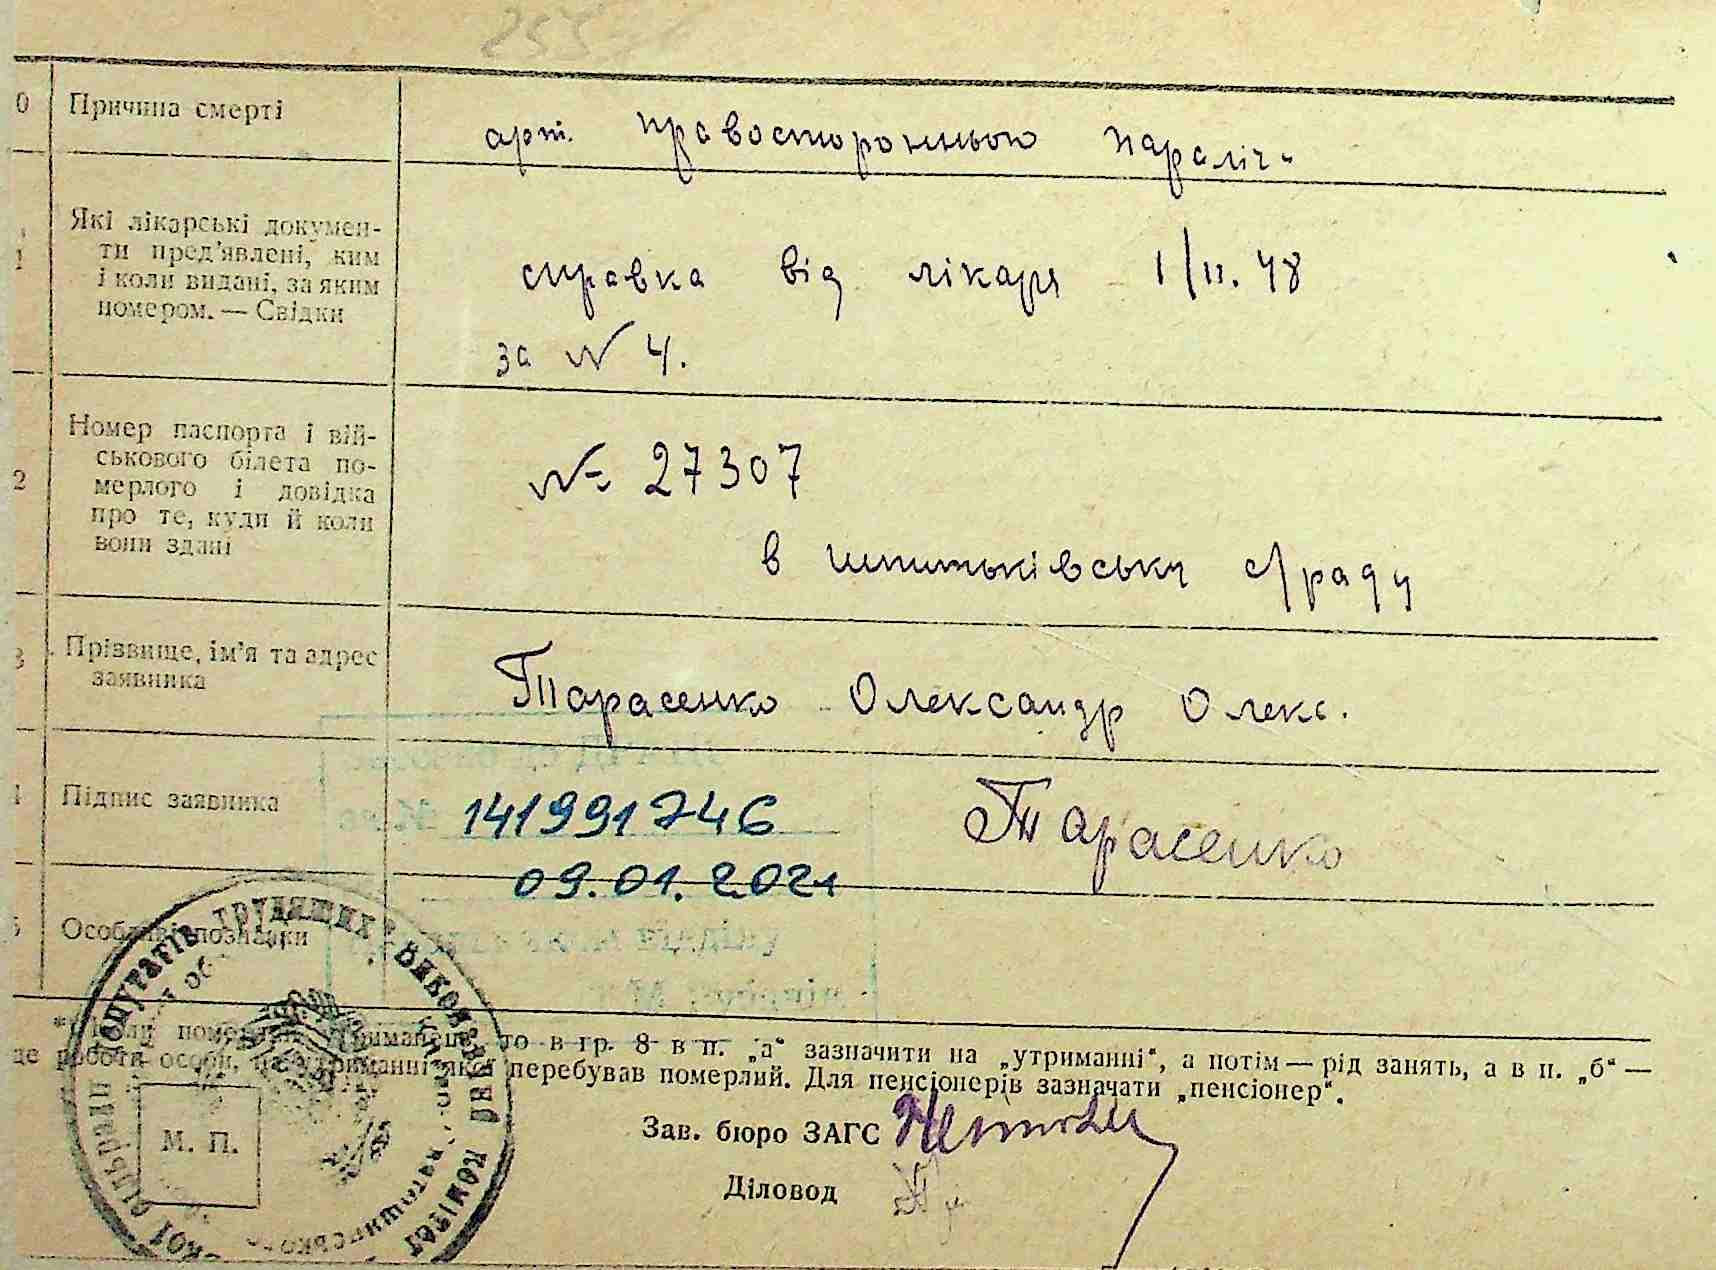 255
0 Причина смерті
арт. правосторонньою параліч-
1 Які лікарські докумен-
ти пред'явлені, ким
і коли видані, за яким
номером. — Свідки
справка від лікаря 1/II. 48
за № 4.
2 Номер паспорта і вій-
ськового білета по-
мерлого і довідка
про те, куди й коли
вони здані
№ 27307
в шпитьківську с/раду
3 Прізвище, ім'я та адрес
заявника
Тарасенко Олександр Олекс.
Підпис заявника
141991746
Тарасенко
09.01.2021
5 Особливі познаки
відділу
в гр. 8 в п. „а“ зазначити на „утриманні“, а потім — рід занять, а в п. „б“ —
де роботи особи, на утриманні якої перебував померлий. Для пенсіонерів зазначати „пенсіонер“.
Зав. бюро ЗАГС
М. П.
Діловод
депутатів трудящих Виконавчий комітет